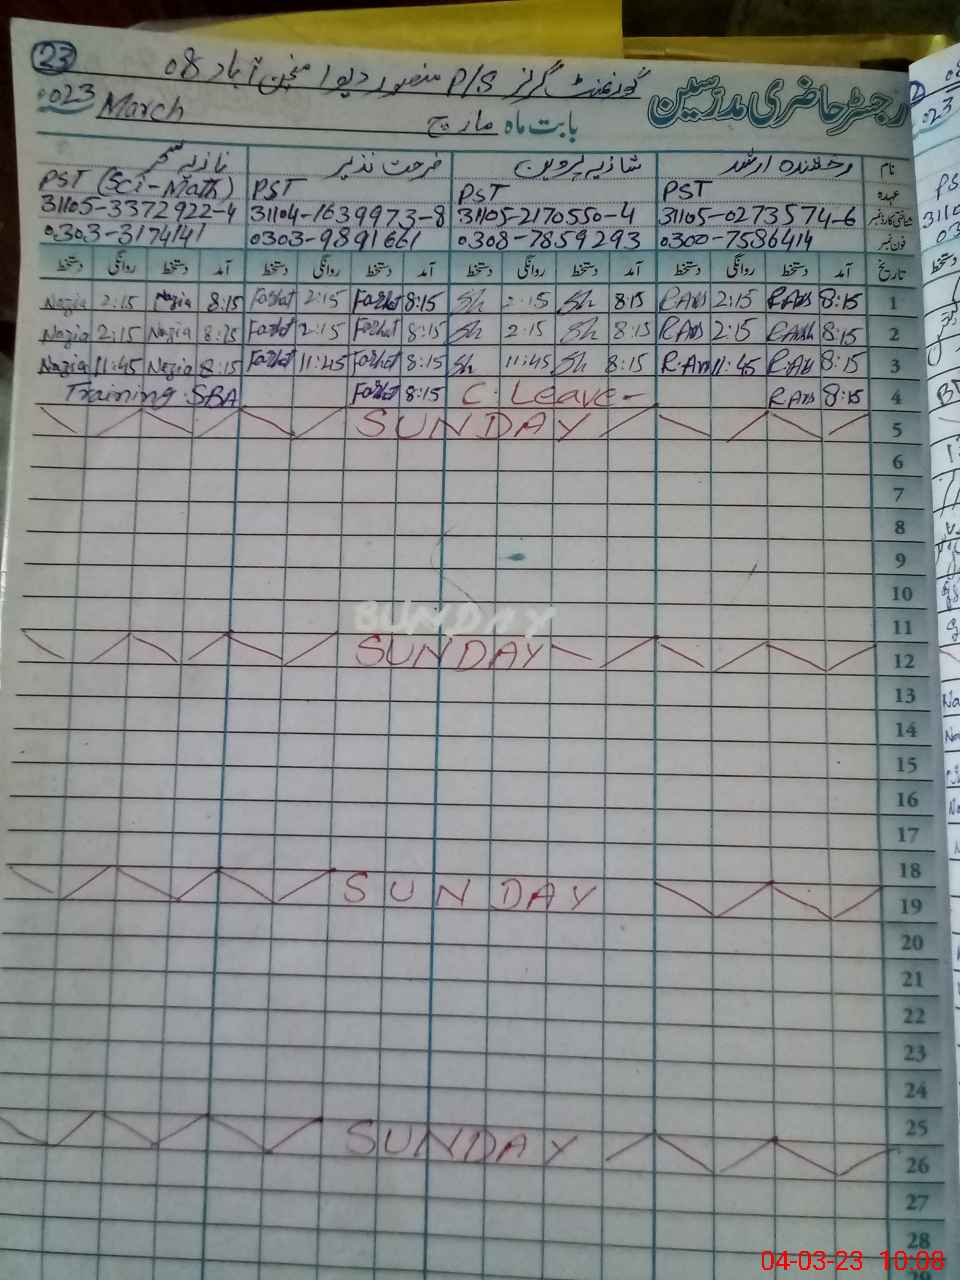 23
گورنمنٹ گرلز P/S منصور دیوا منچن آباد 08
رجسٹر حاضری مدرسین
023 March
بابت ماہ مارچ
نام رخشندہ ارشد شازیہ پروین فرحت نذیر نازیہ سحر
عہدہ PST PST PST PST (Sci-Math)
شناختی کارڈ نمبر 31105-0273574-6 31105-2170550-4 31104-1639973-8 31105-3372922-4
فون نمبر 0300-7586414 0308-7859293 0303-9891661 0303-3174141
تاریخ آمد دستخط روانگی دستخط آمد دستخط روانگی دستخط آمد دستخط روانگی دستخط آمد دستخط روانگی دستخط
Nazia 2:15 Nazia 8:15 Farhat 2:15 Farhat 8:15 Sh 2:15 Sh 8:15 RArs 2:15 RArs 8:15 1
Nazia 2:15 Nazia 8:15 Farhat 2:15 Farhat 8:15 Sh 2:15 Sh 8:15 RArs 2:15 RArs 8:15 2
Nazia 11:45 Nazia 8:15 Farhat 11:45 Farhat 8:15 Sh 11:45 Sh 8:15 RArs 11:45 RArs 8:15 3
Training SBA Farhat 8:15 C. Leave - RArs 8:15 4
SUNDAY 5
6
7
8
9
10
SUNDAY 11
SUNDAY 12
13
14
15
16
17
18
SUNDAY 19
20
21
22
23
24
25
SUNDAY 26
27
28
04-03-23 10:08